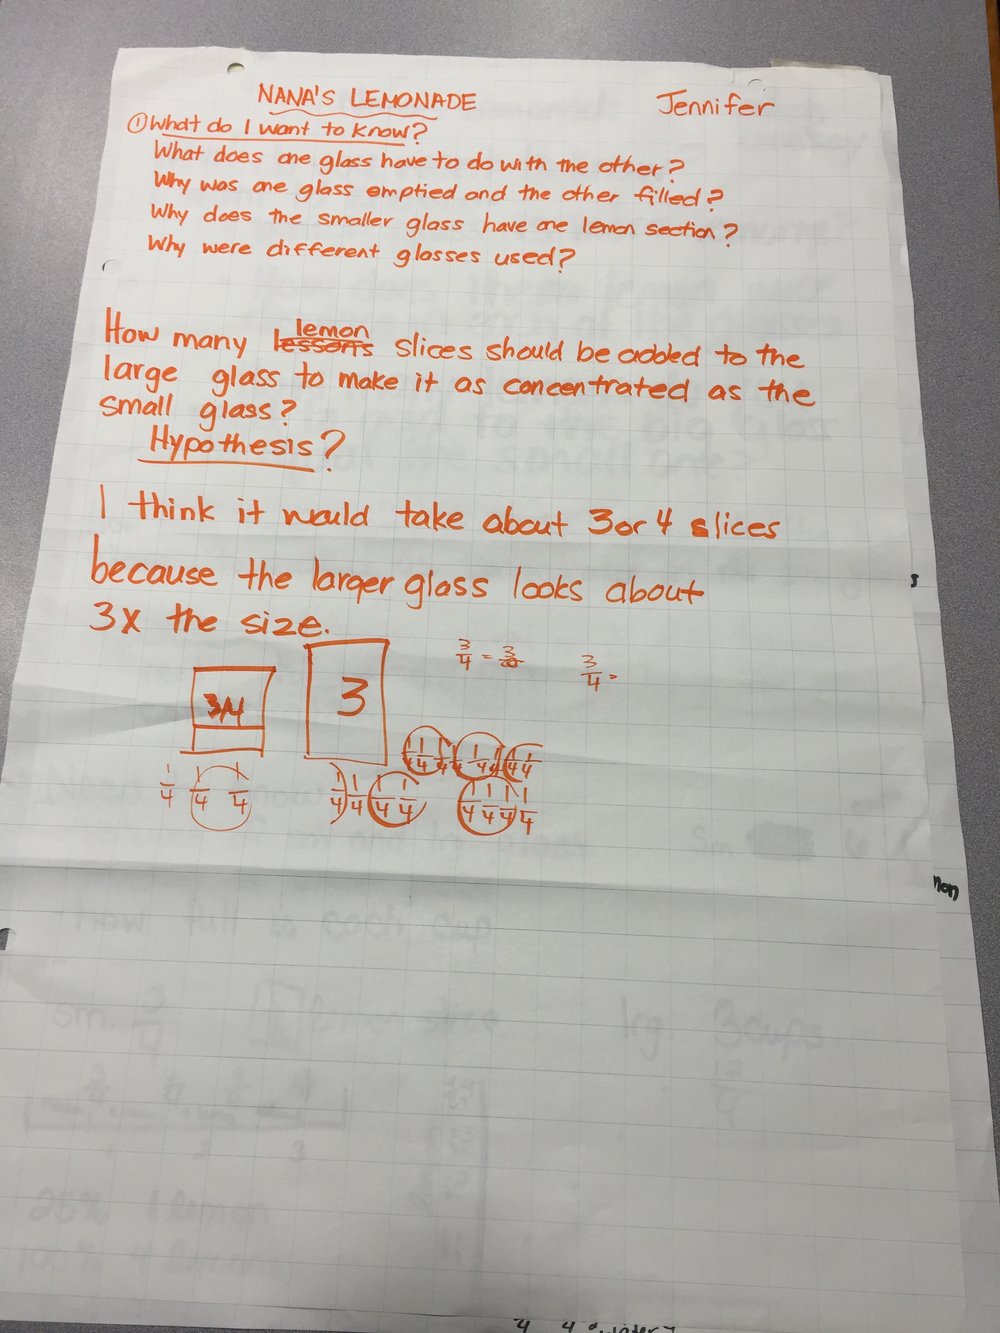 NANA'S LEMONADE Jennifer
① What do I want to know?
What does one glass have to do with the other?
Why was one glass emptied and the other filled?
Why does the smaller glass have one lemon section?
Why were different glasses used?
lemon
How many lessons slices should be added to the
large glass to make it as concentrated as the
small glass?
Hypothesis?
I think it would take about 3 or 4 slices
because the larger glass looks about
3x the size.
3/4 = 3/ 3/4 =
3/4 3
1/4 1/4 1/4 1/4 1/4 1/4 1/4 1/4
1/4 1/4 1/4 1/4 1/4 1/4 1/4 1/4 1/4 1/4 1/4
how full is each cup
sm. 3/4 lrg. 3 cups
12/4
1 2 3
25% 1 lemon
non